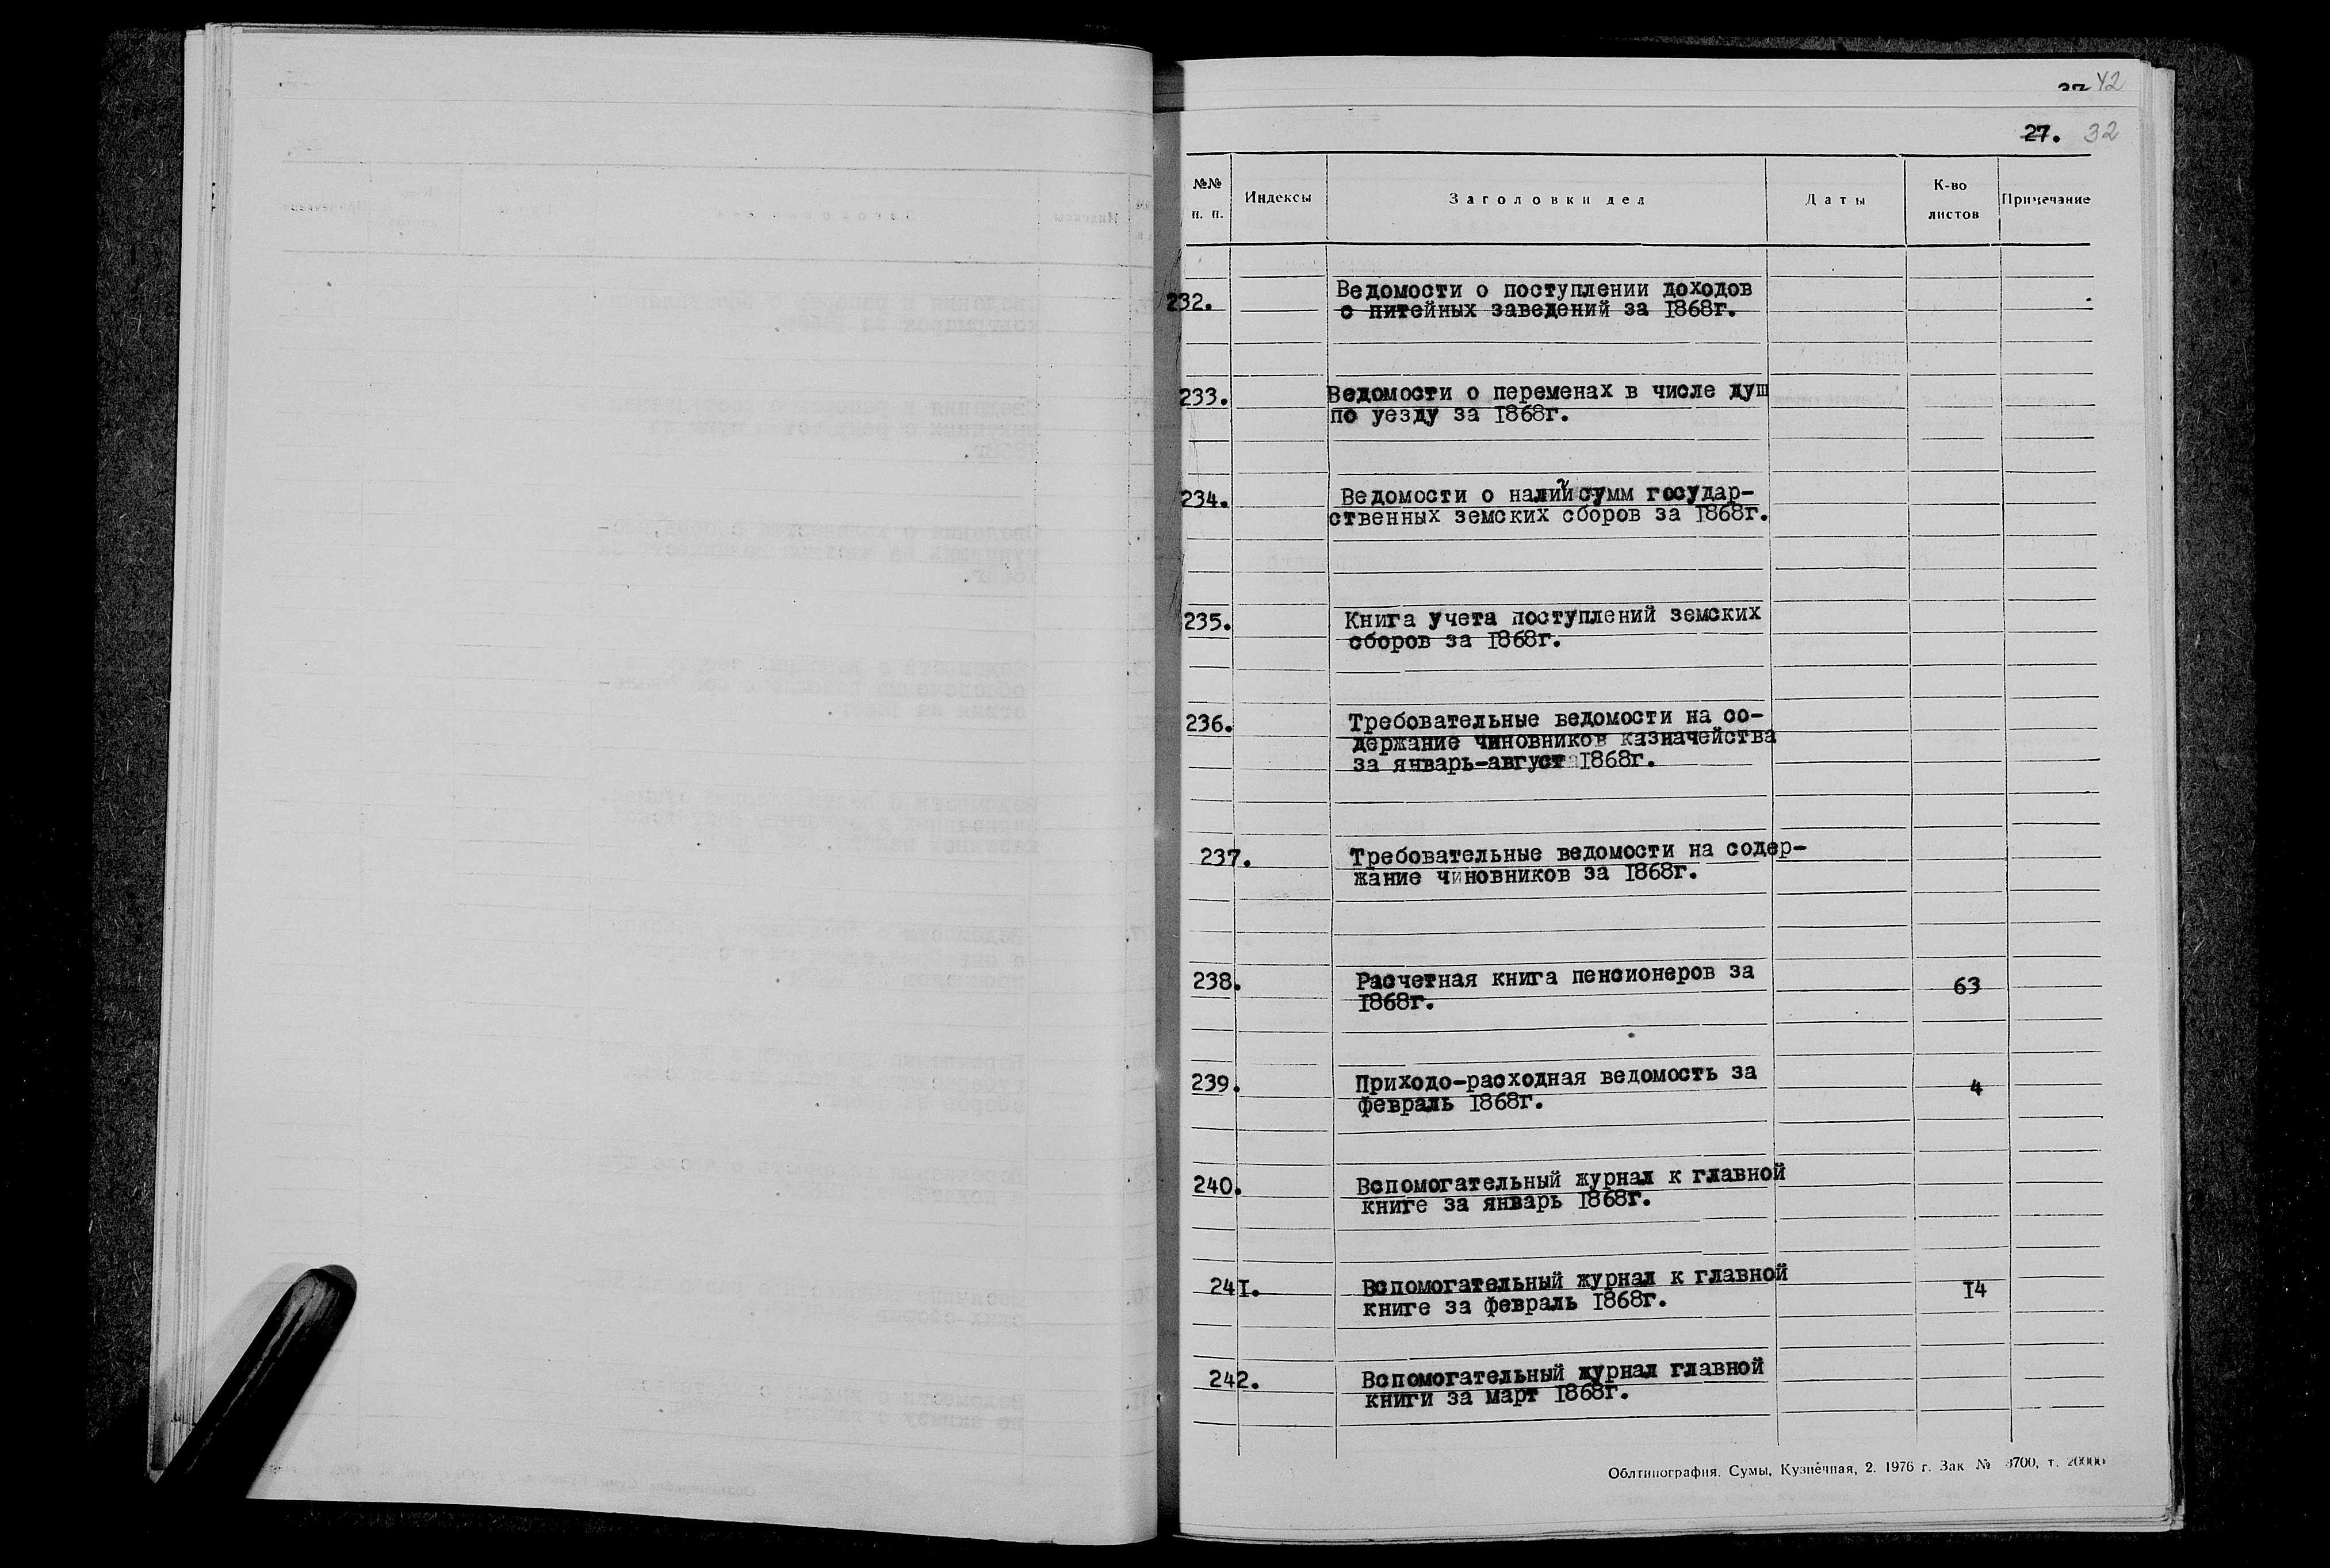 37 42
27. 32
№№ п. п. Индексы Заголовки дел Даты К-во листов Примечание
232. Ведомости о поступлении доходов
с питейных заведений за 1868г.
233. Ведомости о переменах в числе душ
по уезду за 1868г.
234. Ведомости о наличии сумм государ-
ственных земских сборов за 1868г.
235. Книга учета поступлений земских
сборов за 1868г.
236. Требовательные ведомости на со-
держание чиновников казначейства
за январь-август 1868г.
237. Требовательные ведомости на содер-
жание чиновников за 1868г.
238. Расчетная книга пенсионеров за 63
1868г.
239. Приходо-расходная ведомость за 4
февраль 1868г.
240. Вспомогательный журнал к главной
книге за январь 1868г.
241. Вспомогательный журнал к главной 14
книге за февраль 1868г.
242. Вспомогательный журнал главной
книги за март 1868г.
Облтипография. Сумы, Кузнечная, 2. 1976 г. Зак № 3700, т. 20000